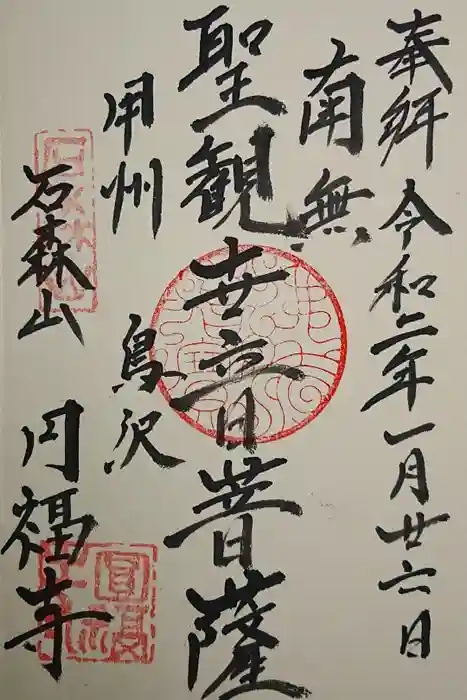 奉拝 令和二年一月廿六日
南無
聖観世音菩薩
甲州 鳥沢
石森山 円福寺